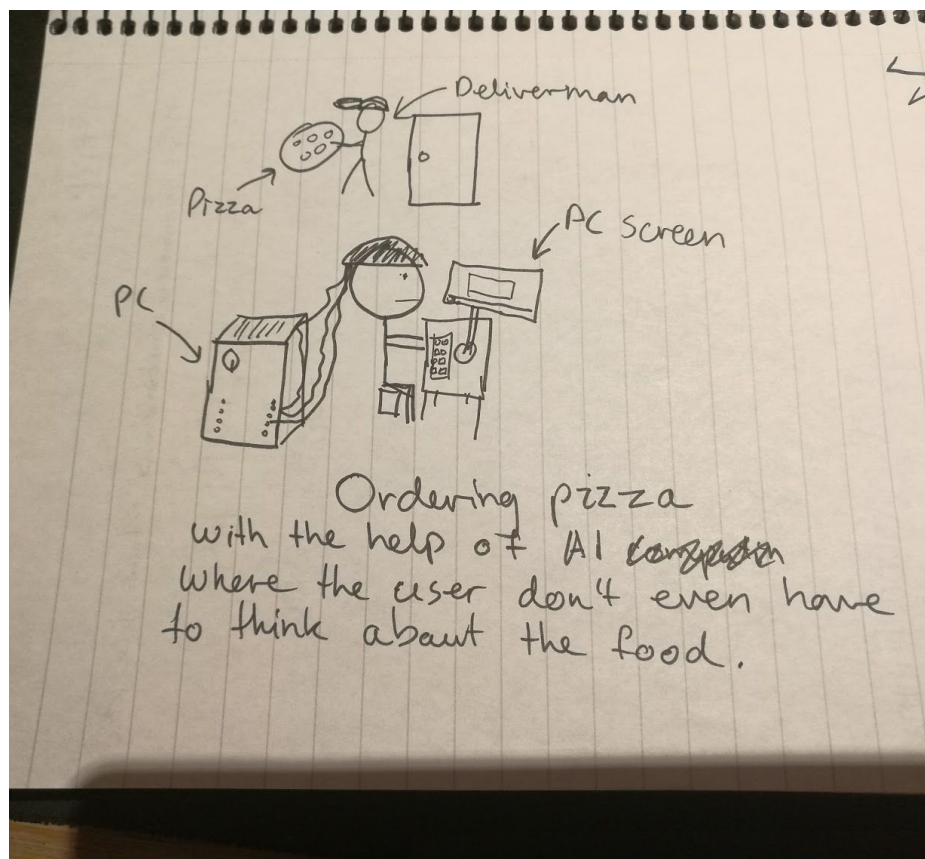 Deliverman
Pizza
PC Screen
PC
Ordering pizza
with the help of AI
where the user don't even have
to think about the food.